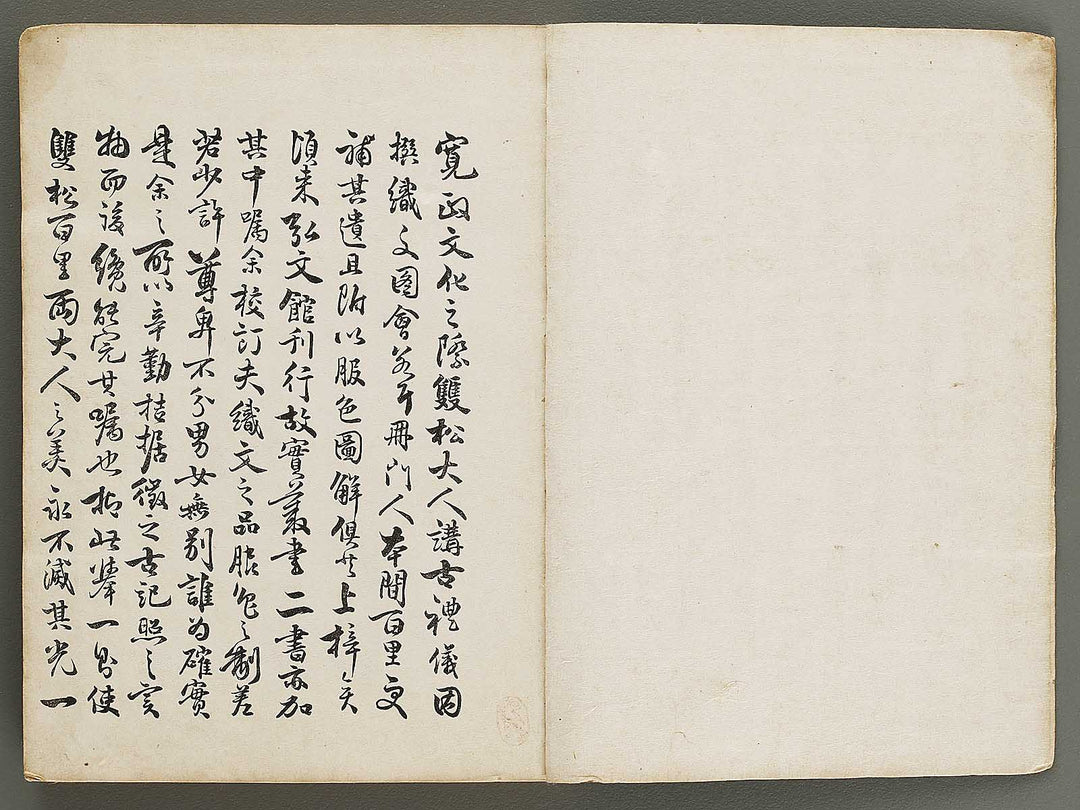 寛政文化之際雙松大人講古禮儀因
撰織文図會若干冊門人本間百里更
補其遺且附以服色圖解倶共上梓矣
頃来弘文館刊行故實叢書二書亦加
其中嘱余校訂夫織文之品服色之制差
若少許尊卑不分男女無別誰为確實
是余之所以辛勤拮据徴之古記照之実
物而後纔能完其嘱也抑此挙一則使
雙松百里両大人之美永不滅其光一